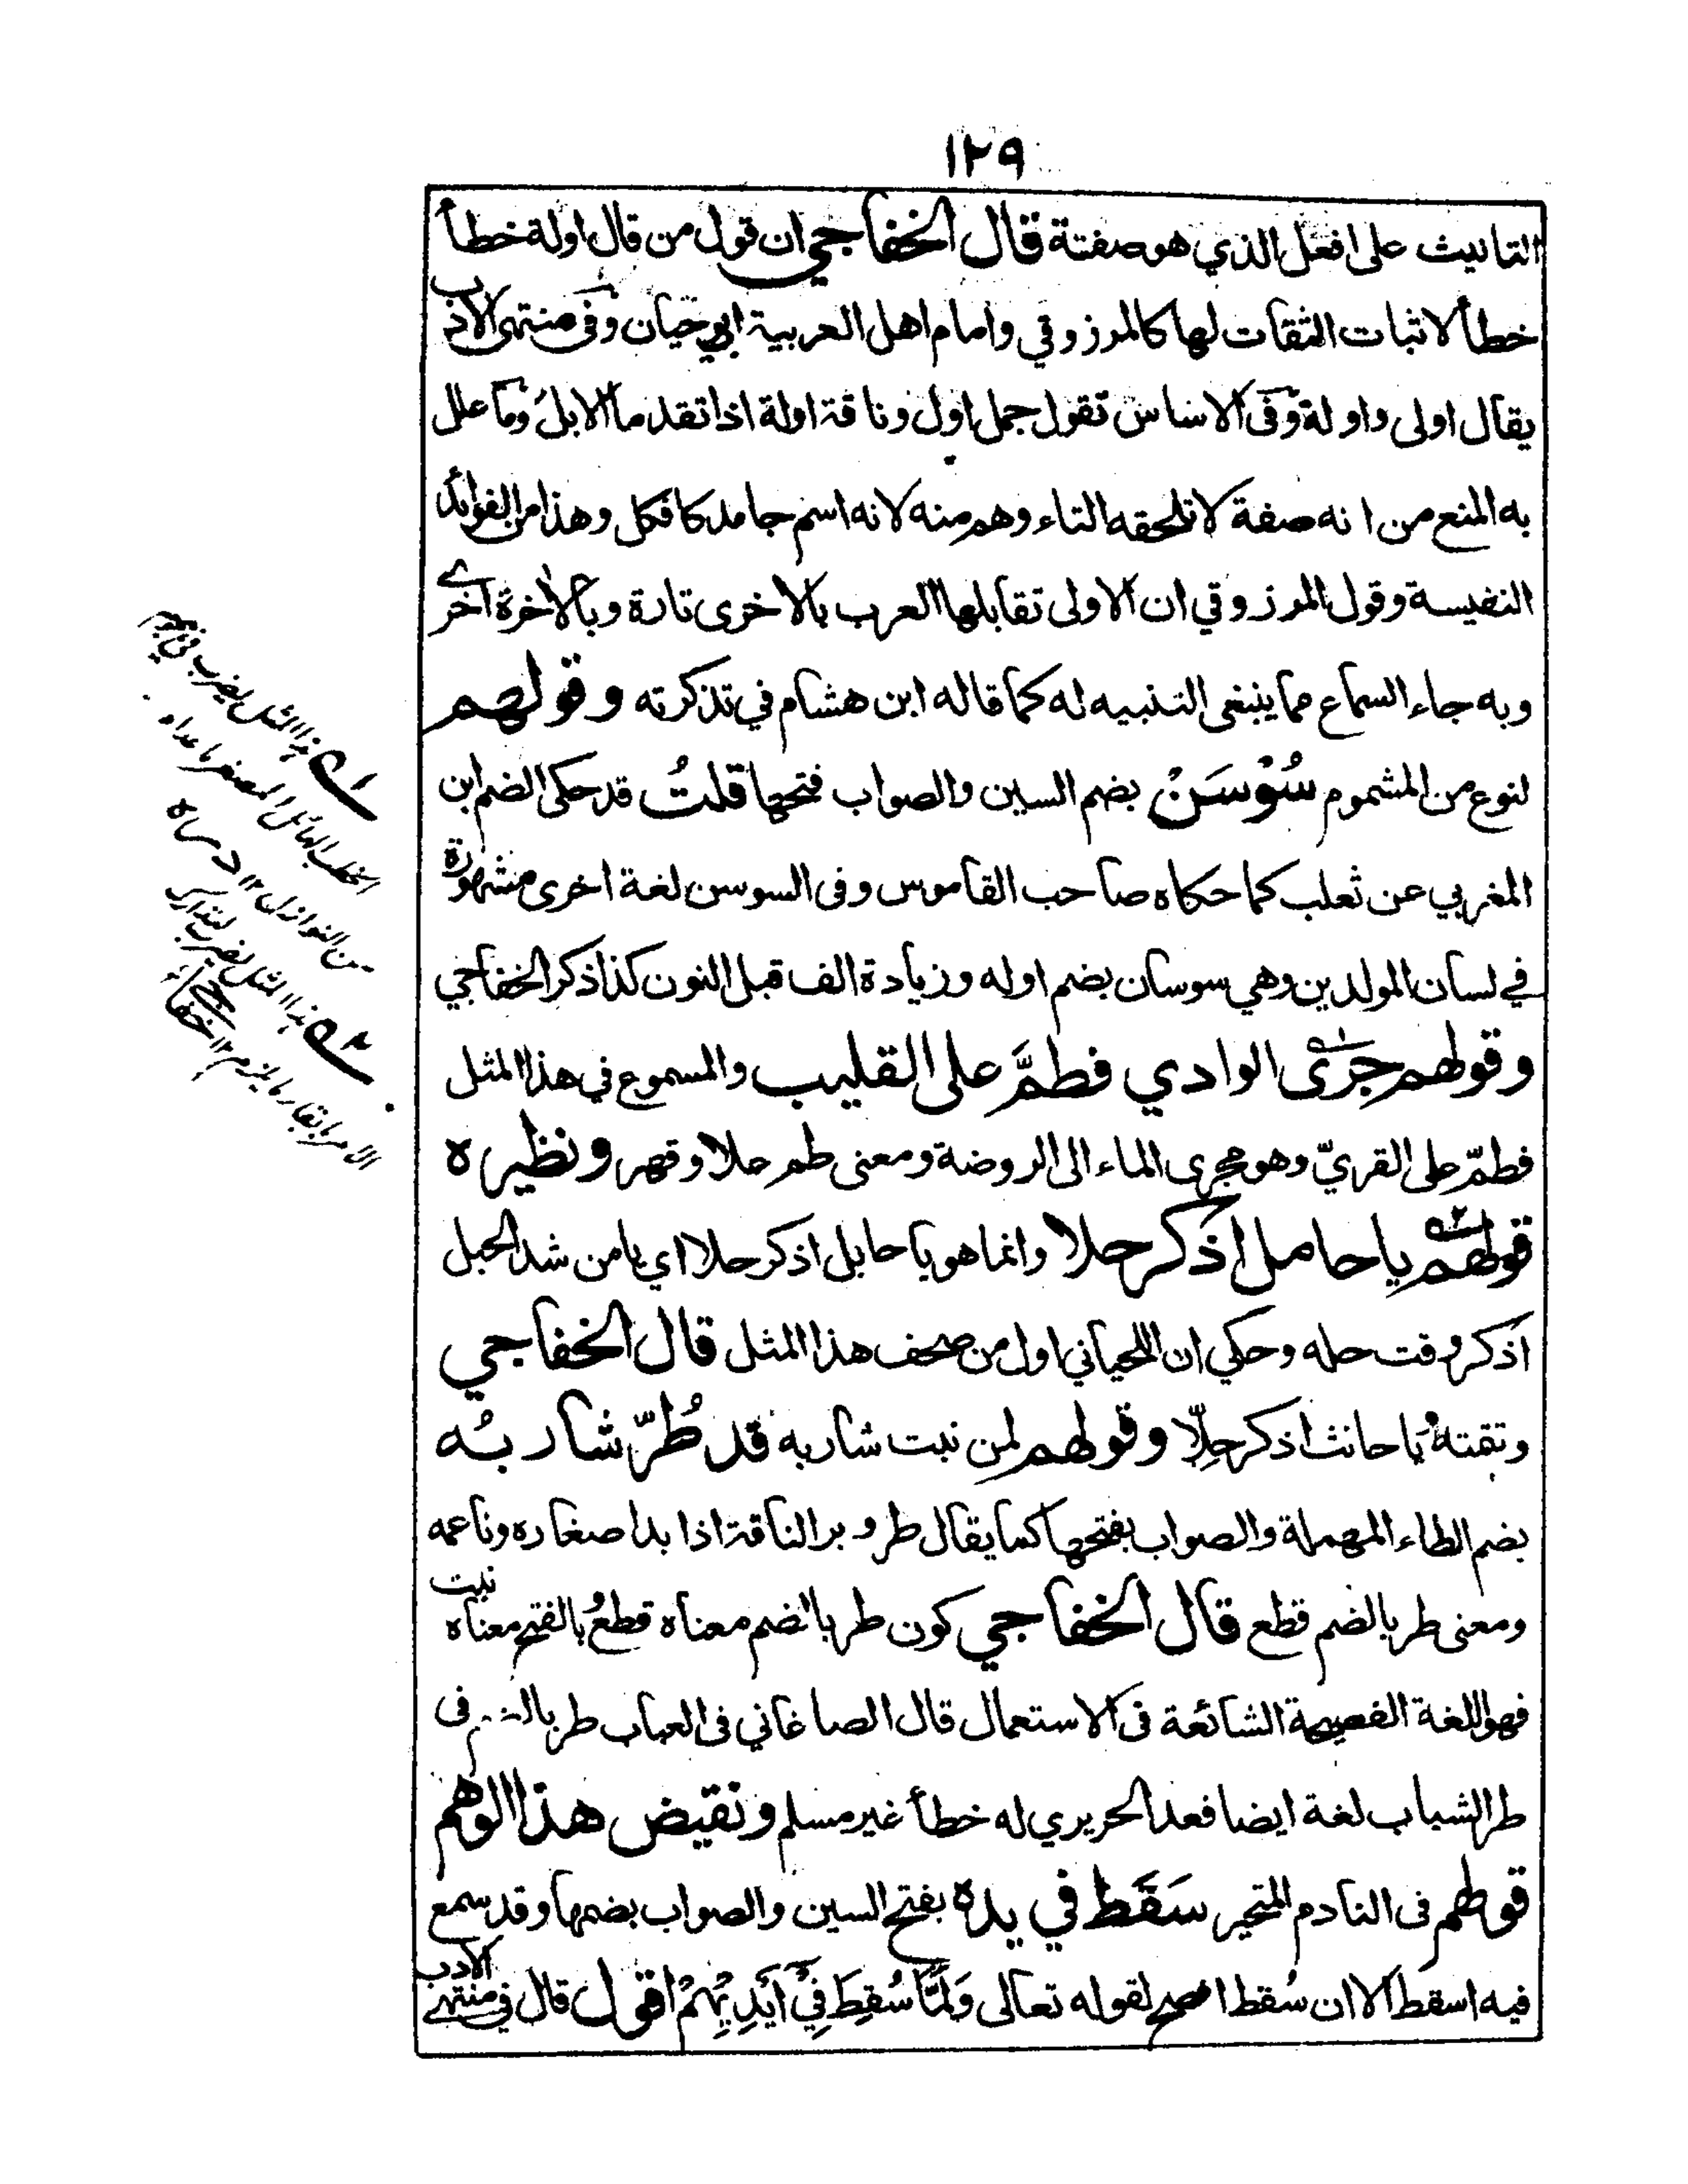 ١٢٩
التانيث على افعل الذي هو صفتة قال الخفاجي ان قول من قال اولة خطأ
خطأ لاثبات الثقات لها كالمرزوقي وامام اهل العربية ابي حيان وفى منتهى الادب
يقال اولى واولة وفى الاساس تقول جمل اول وناقة اولة اذا تقدما الابل وما علل
به المنع من انه صفة لا تلحقه التاء وهم منه لانه اسم جامد كافكل وهذا من الفوائد
النفيسة وقول المرزوقي ان الاولى تقابلها العرب بالاخرى تارة وبالاخرة اخرى
وبه جاء السماع مما ينبغى التنبيه له كما قاله ابن هشام في تذكرته وقولهم
لنوع من المشموم سُوْسَنْ بضم السين والصواب فتحها قلتُ قد حكى الضم ابن
المغربي عن ثعلب كما حكاه صاحب القاموس وفى السوسن لغة اخرى مشهورة
في لسان المولدين وهي سوسان بضم اوله وزيادة الف قبل النون كذا ذكر الخفاجي
وقولهم جرى الوادي فطمَّ على القليب والمسموع في هذا المثل
فطمّ على القريّ وهو مجرى الماء الى الروضة ومعنى طم علا وقهر ونظيره
قولهم يا حامل اذكر حلا وانما هو يا حابل اذكر حلا اي يا من شد الحبل
اذكر وقت حله وحكي ان اللحياني اول من صحف هذا المثل قال الخفاجي
وتقته يا حانث اذكر حِلّا وقولهم لمن نبت شاربه قد طُرّ شاربُه
بضم الطاء المهملة والصواب بفتحها كما يقال طر وبر الناقة اذا بدا صغاره وناعمه
ومعنى طر بالضم قطع قال الخفاجي كون طر بالضم معناه قطع وبالفتح معناه نبت
فهو اللغة الفصيحة الشائعة فى الاستعمال قال الصاغاني فى العباب طر بالضم فى
طر الشباب لغة ايضا فعد الحريري له خطأ غير مسلم ونقيض هذا الوهم
قولهم فى النادم المتحير سَقَط في يده بفتح السين والصواب بضمها وقد سمع
فيه اسقط الا ان سُقط افصح لقوله تعالى وَلَمَّا سُقِطَ فِيْ اَيْدِيْهِمْ اقول قال في منتهى الادب
هذا المثل يضرب
الخطب الهائل المصغر ما عداه
من النوازل ١٢
هذا المثل يضرب